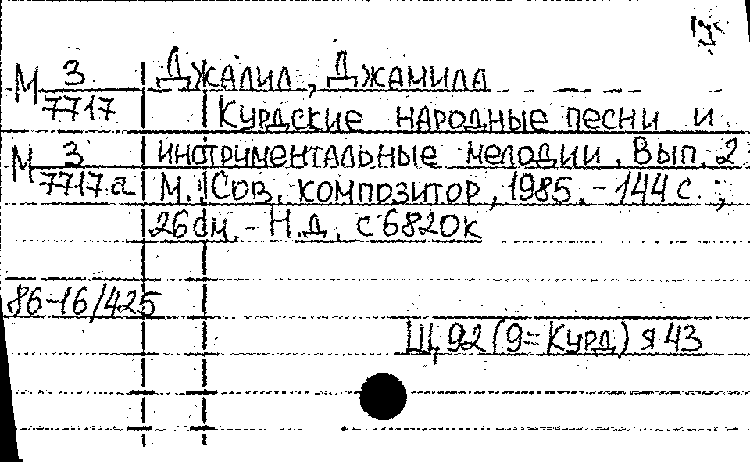 Джалил, Джамила
М 3/7717
Курдские народные песни и
М 3/7717а
инструментальные мелодии. Вып. 2
М.: Сов. композитор, 1985. - 144 с. ;
26см. - Н.д. с6820к
86-16/425
Щ 92 (9=Курд) я 43